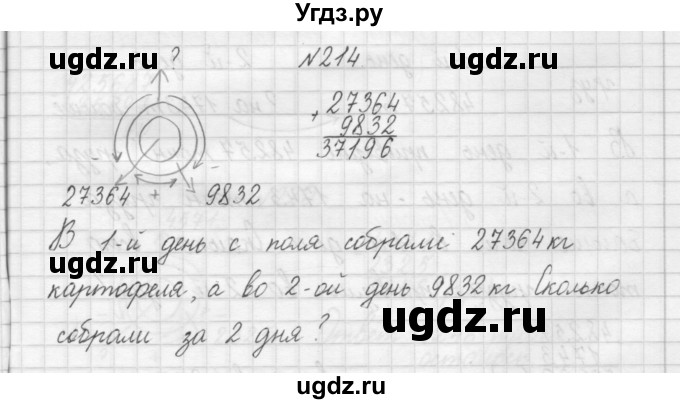 Угдз.ру
ugdz.ru ? N214 ugdz.ru
+ 27364
9832
37196
27364 + - 9832
В 1-й день с поля собрали 27364 кг
ugdz.ru ugdz.ru
картофеля, а во 2-ой день 9832 кг Сколько
ugdz.ru
собрали за 2 дня?
ugdz.ru ugdz.ru
ugdz.ru